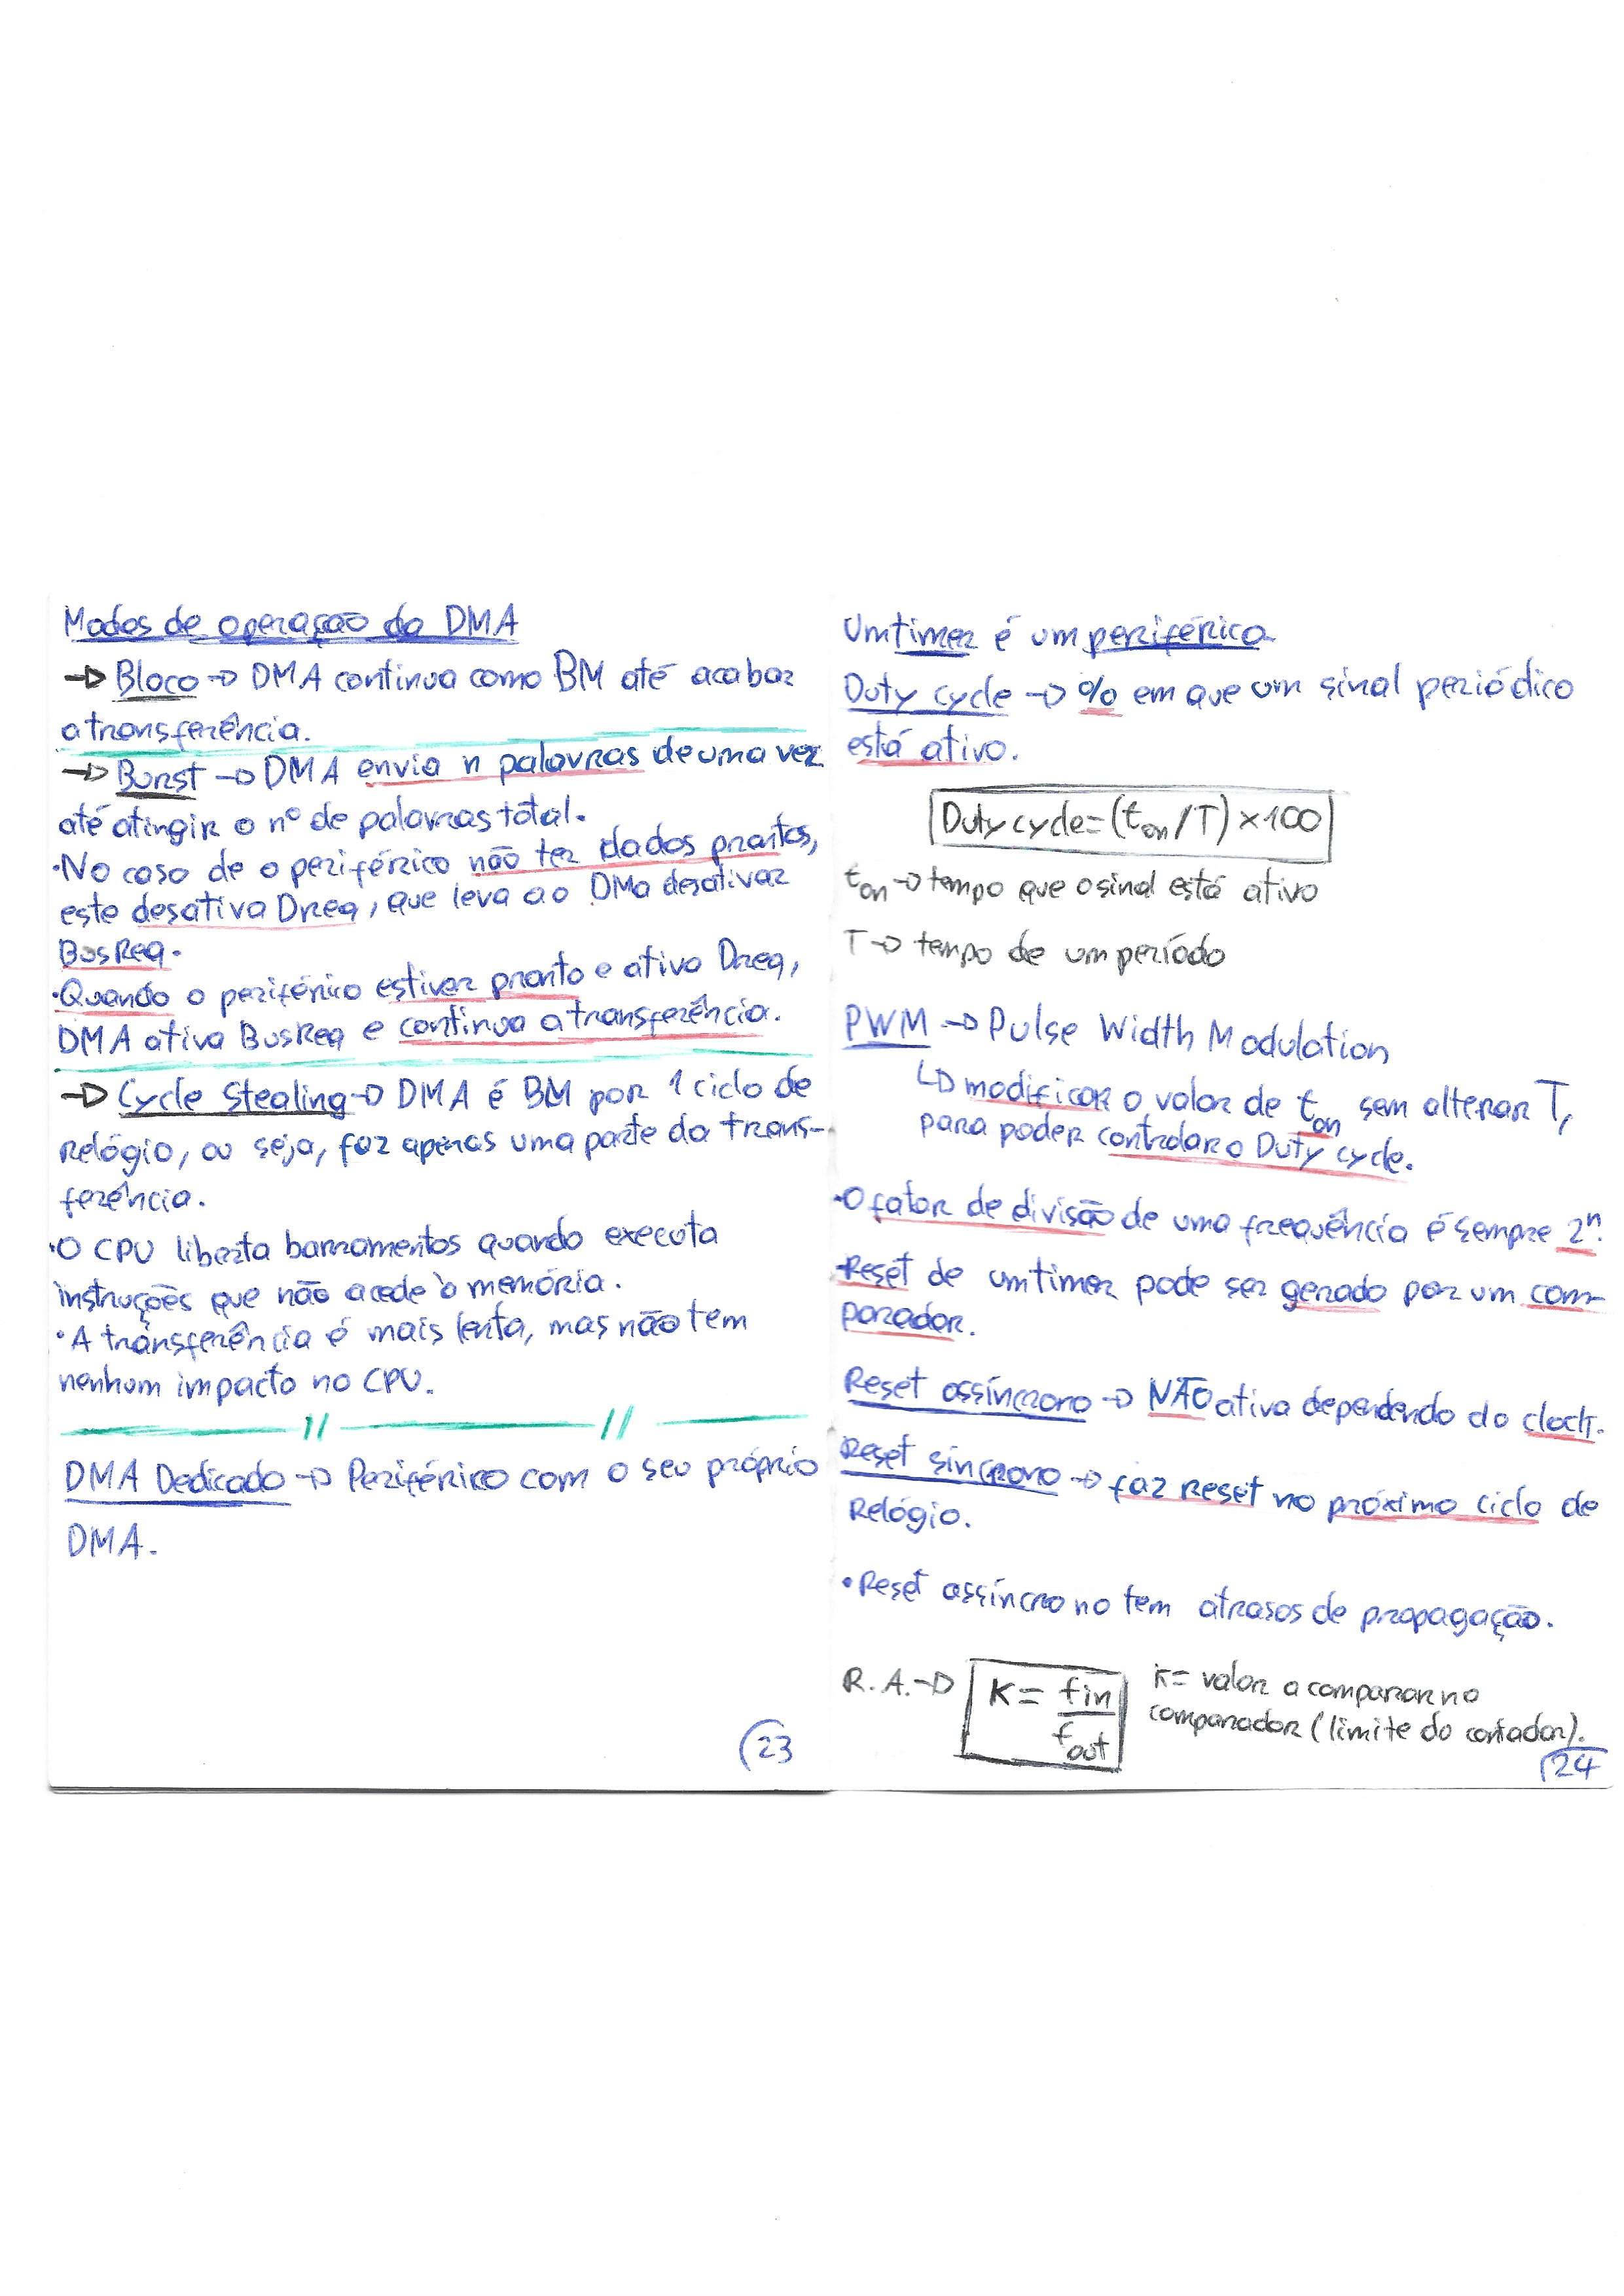 Modos de operação do DMA
→ Bloco → DMA continua como BM até acabar
a transferência.
→ Burst → DMA envia n palavras de uma vez
até atingir o nº de palavras total.
·No caso de o periférico não ter dados prontos,
este desativa Dreq, que leva ao DMA desativar
BusReq.
·Quando o periférico estiver pronto e ativa Dreq,
DMA ativa BusReq e continua a transferência.
→ Cycle Stealing → DMA é BM por 1 ciclo de
relógio, ou seja, faz apenas uma parte da trans-
ferência.
·O CPU liberta barramentos quando executa
instruções que não acede à memória.
·A transferência é mais lenta, mas não tem
nenhum impacto no CPU.
DMA Dedicado → Periférico com o seu próprio
DMA.
23
Um timer é um periférico
Duty cycle → % em que um sinal periódico
está ativo.
Duty cycle = (ton/T) × 100
ton → tempo que o sinal está ativo
T → tempo de um período
PWM → Pulse Width Modulation
↳ modificar o valor de ton sem alterar T,
para poder controlar o Duty cycle.
·O fator de divisão de uma frequência é sempre 2ⁿ.
·Reset de um timer pode ser gerado por um com-
parador.
Reset assíncrono → NÃO ativa dependendo do clock.
Reset síncrono → faz reset no próximo ciclo de
relógio.
·Reset assíncrono tem atrasos de propagação.
R.A. → K = fin/fout
K = valor a comparar no
comparador (limite do contador).
24